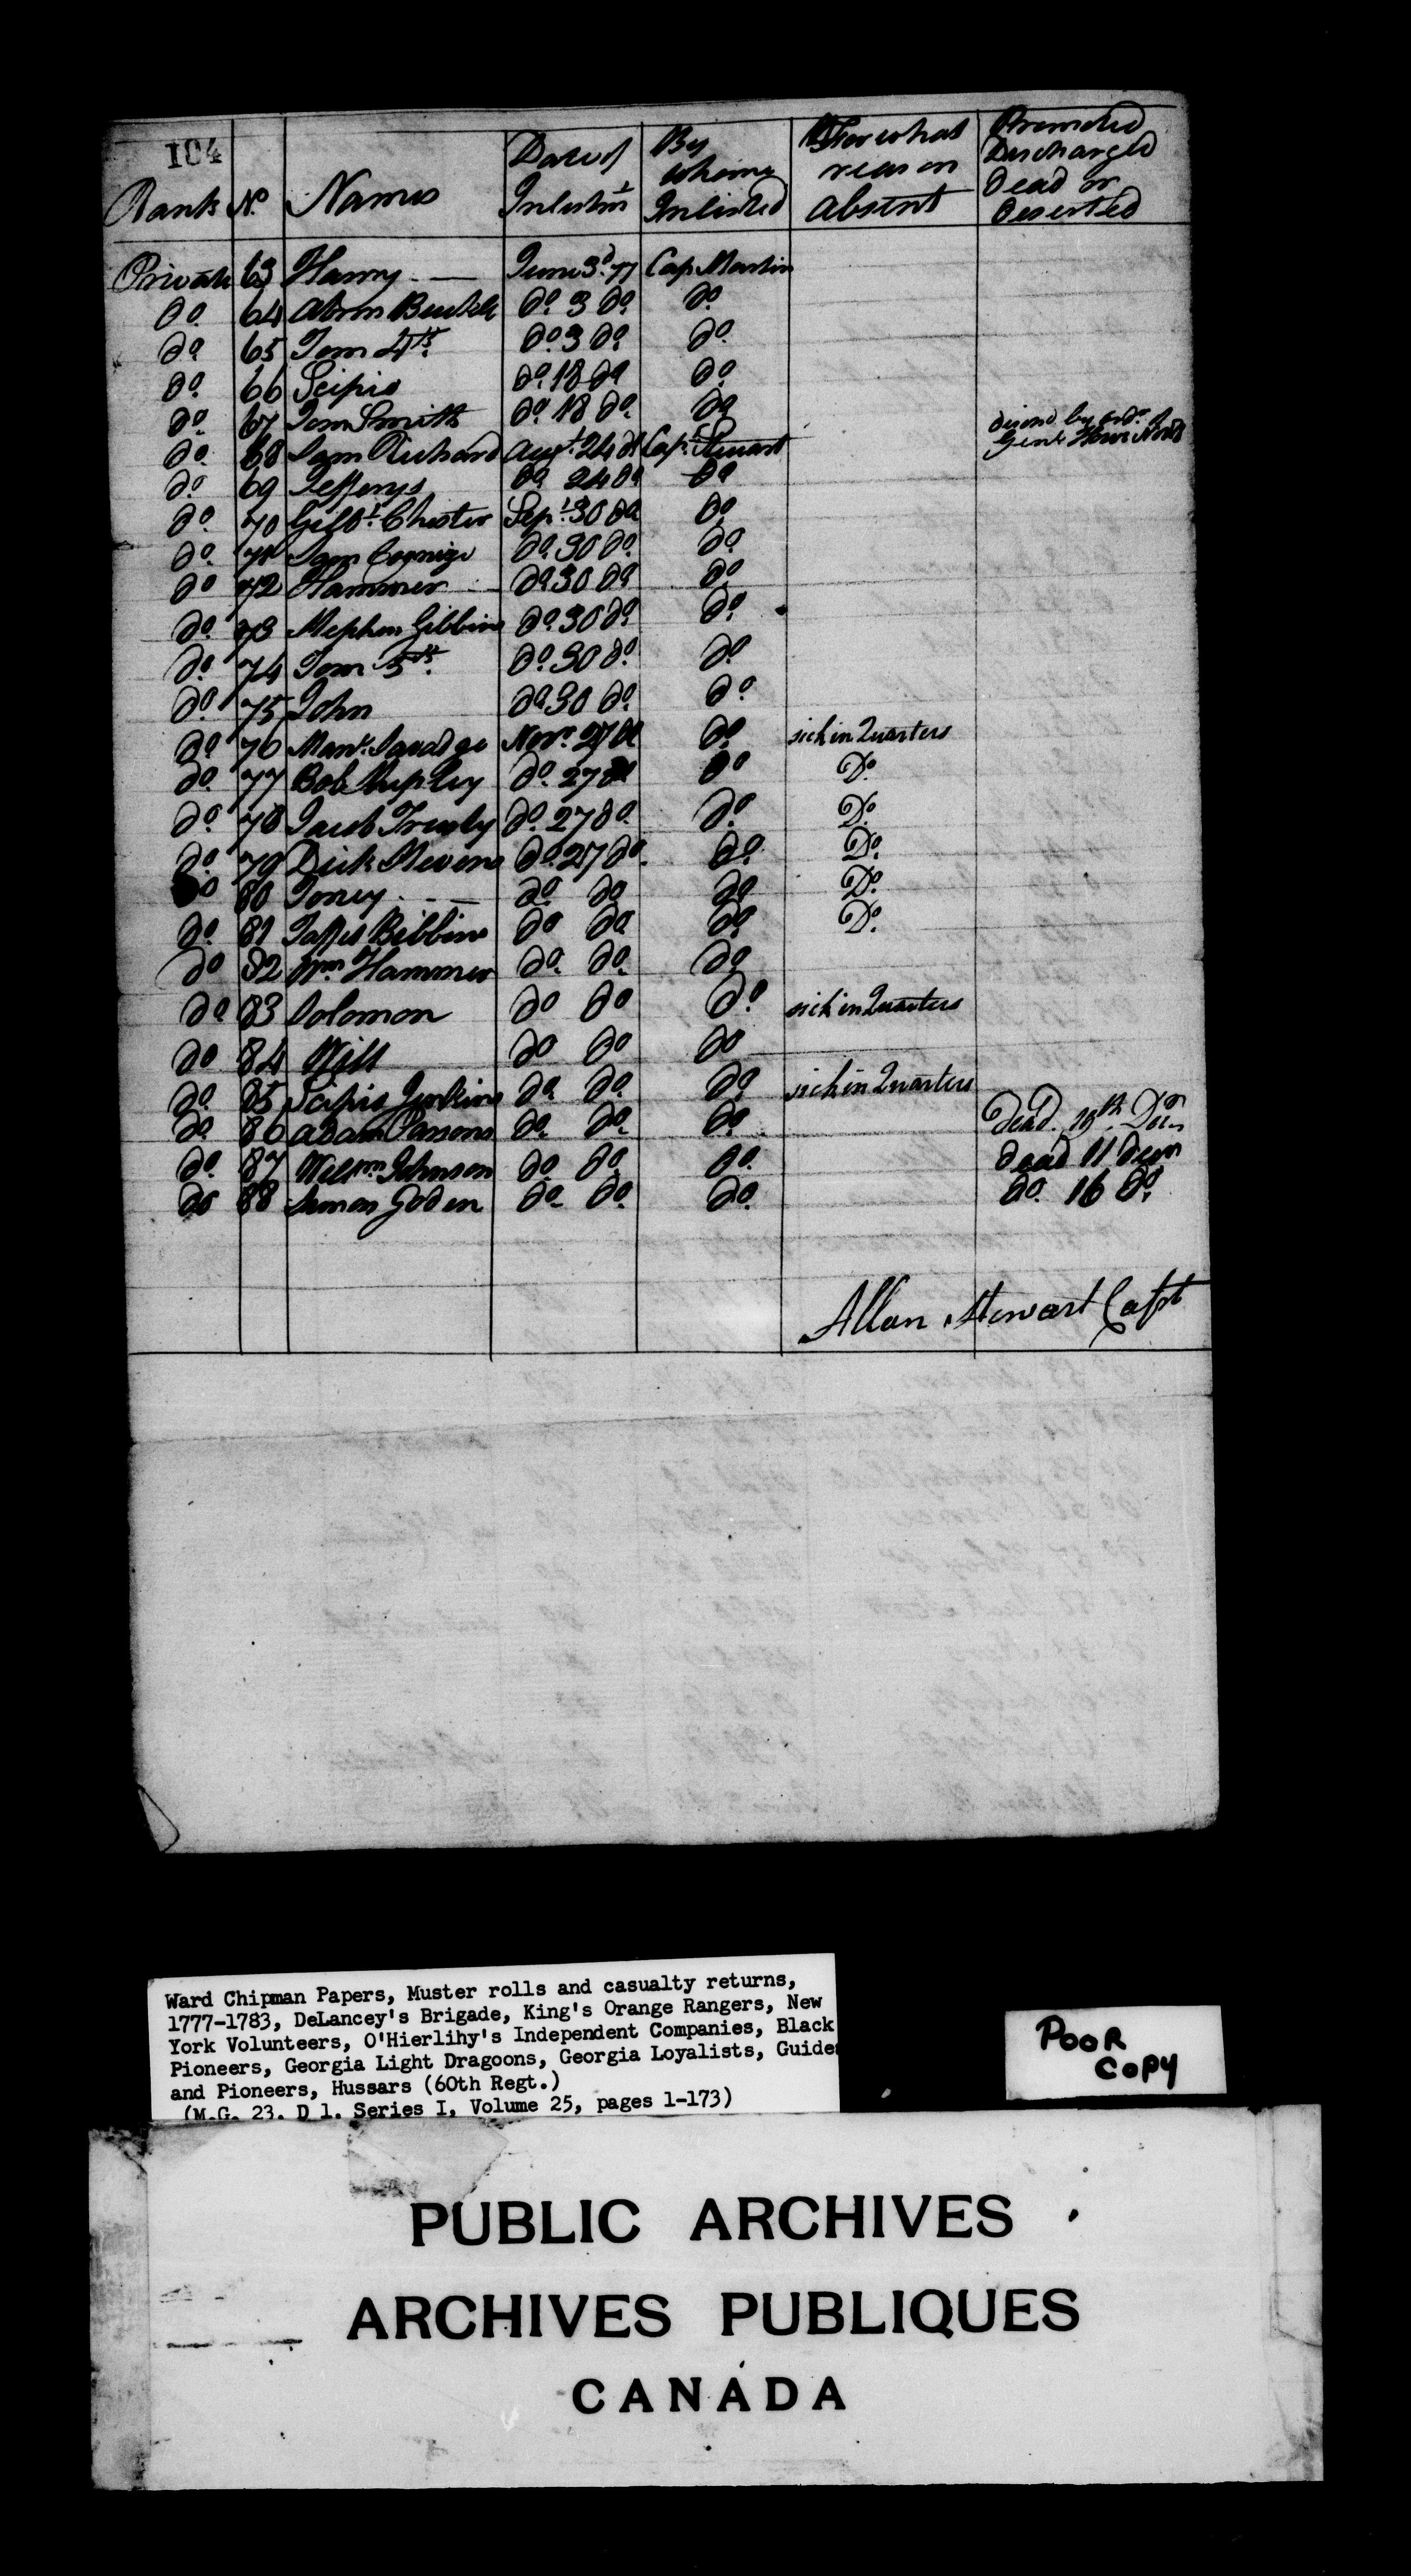 104
Rank No. Names Date of Inlistmt By whome Inlisted For what reason absent Promoted Discharged Dead or Deserted
Private 63 Harry June 3d 77 Cap. Martin
Do. 64 Do. 3 Do. Do.
Do. 65 Tom 4th. Do. 3 Do. Do.
Do. 66 Scipio Do. 18 Do Do.
Do. 67 Tom Smith Do. 18 Do. Do
Do. 68 Sam Richard Augt. 24 Do Capt. Stewart by ordr. of Genl Howe
Do. 69 Jefferys Do 24 Do Do
Do. 70 Gilbt. Chester Sept. 30 Do Do.
Do. 71 Sam Do. 30 Do. Do.
Do 72 Hammer Do 30 Do Do.
Do. 73 Stephen Gibbins Do. 30 Do. Do.
Do. 74 Tom 5th. Do. 30 Do. Do.
Do. 75 John Do 30 Do. Do.
Do 76 Savadge Novr. 27 Do Do. sick in Quarters
Do. 77 Bob Shepley Do. 27 Do Do Do.
Do. 78 Jacob Do. 27 Do. Do. Do.
Do. 79 Dick Stevens Do. 27 Do. Do. Do.
Do 80 Toney Do. Do Do Do.
Do. 81 Bibbins Do Do Do. Do.
Do 82 Wm. Hammer Do. Do. Do
Do 83 Solomon Do Do Do. sick in Quarters
Do 84 Will Do Do Do
Do. 85 Scipio Jenkins Do. Do. Do. sick in Quarters
Do. 86 Adam Parsons Do. Do. Do. Dead 19th. Decr.
Do. 87 Willm. Johnson Do. Do. Do. Dead 11 Decr
Do 88 Simon Goden Do. Do. Do. Do. 16 Do.
Allan Stewart Capt
Ward Chipman Papers, Muster rolls and casualty returns,
1777-1783, DeLancey's Brigade, King's Orange Rangers, New
York Volunteers, O'Hierlihy's Independent Companies, Black
Pioneers, Georgia Light Dragoons, Georgia Loyalists, Guides
and Pioneers, Hussars (60th Regt.)
(M.G. 23, D 1, Series I, Volume 25, pages 1-173)
POOR
COPY
PUBLIC ARCHIVES
ARCHIVES PUBLIQUES
CANADA